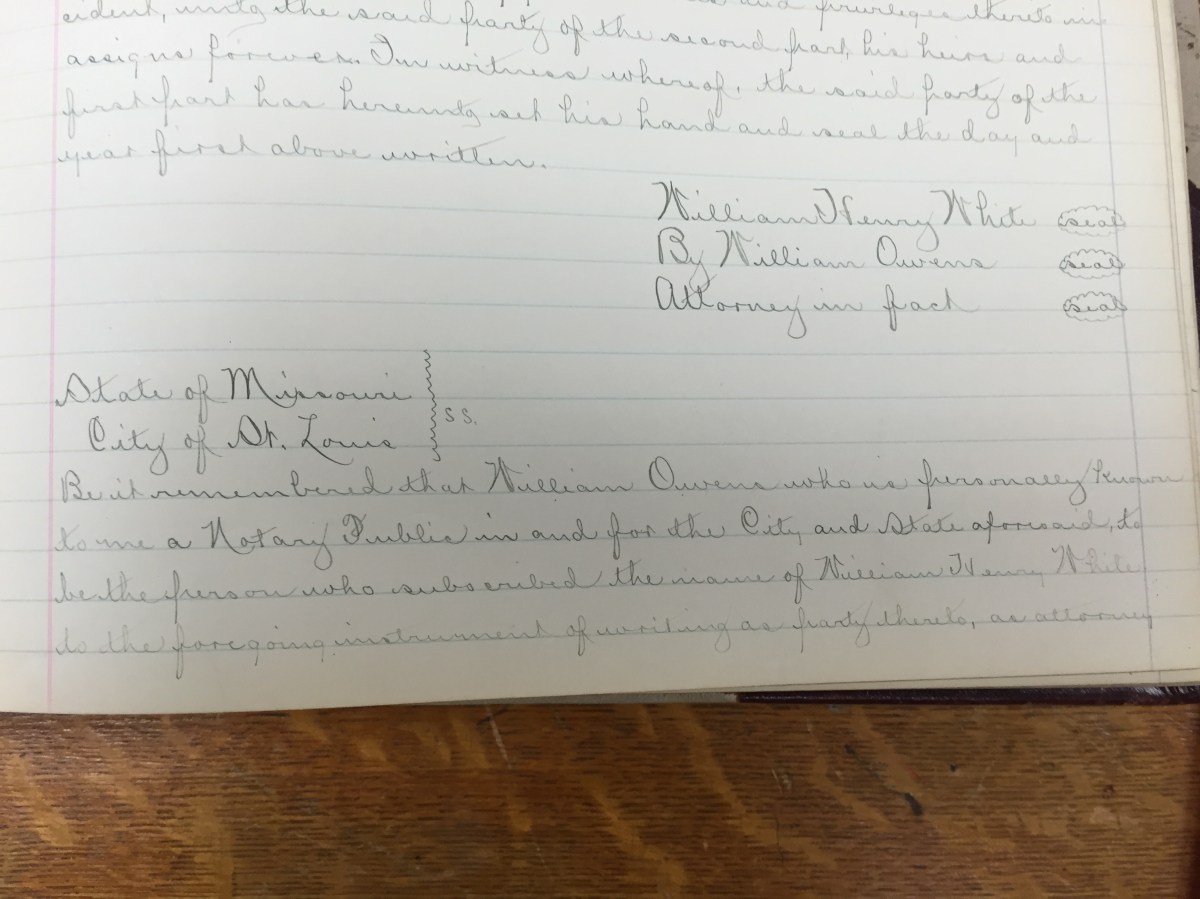 and privileges thereto in
cident, unto the said party of the second part, his heirs and
assigns forever. In witness whereof, the said party of the
first part has hereunto set his hand and seal the day and
year first above written.
William Henry White seal
By William Owens seal
Attorney in fact seal
State of Missouri
City of St. Louis
S S.
Be it remembered that William Owens who is personally known
to me a Notary Public in and for the City and State aforesaid, to
be the person who subscribed the name of William Henry White
to the foregoing instrument of writing as party thereto, as attorney